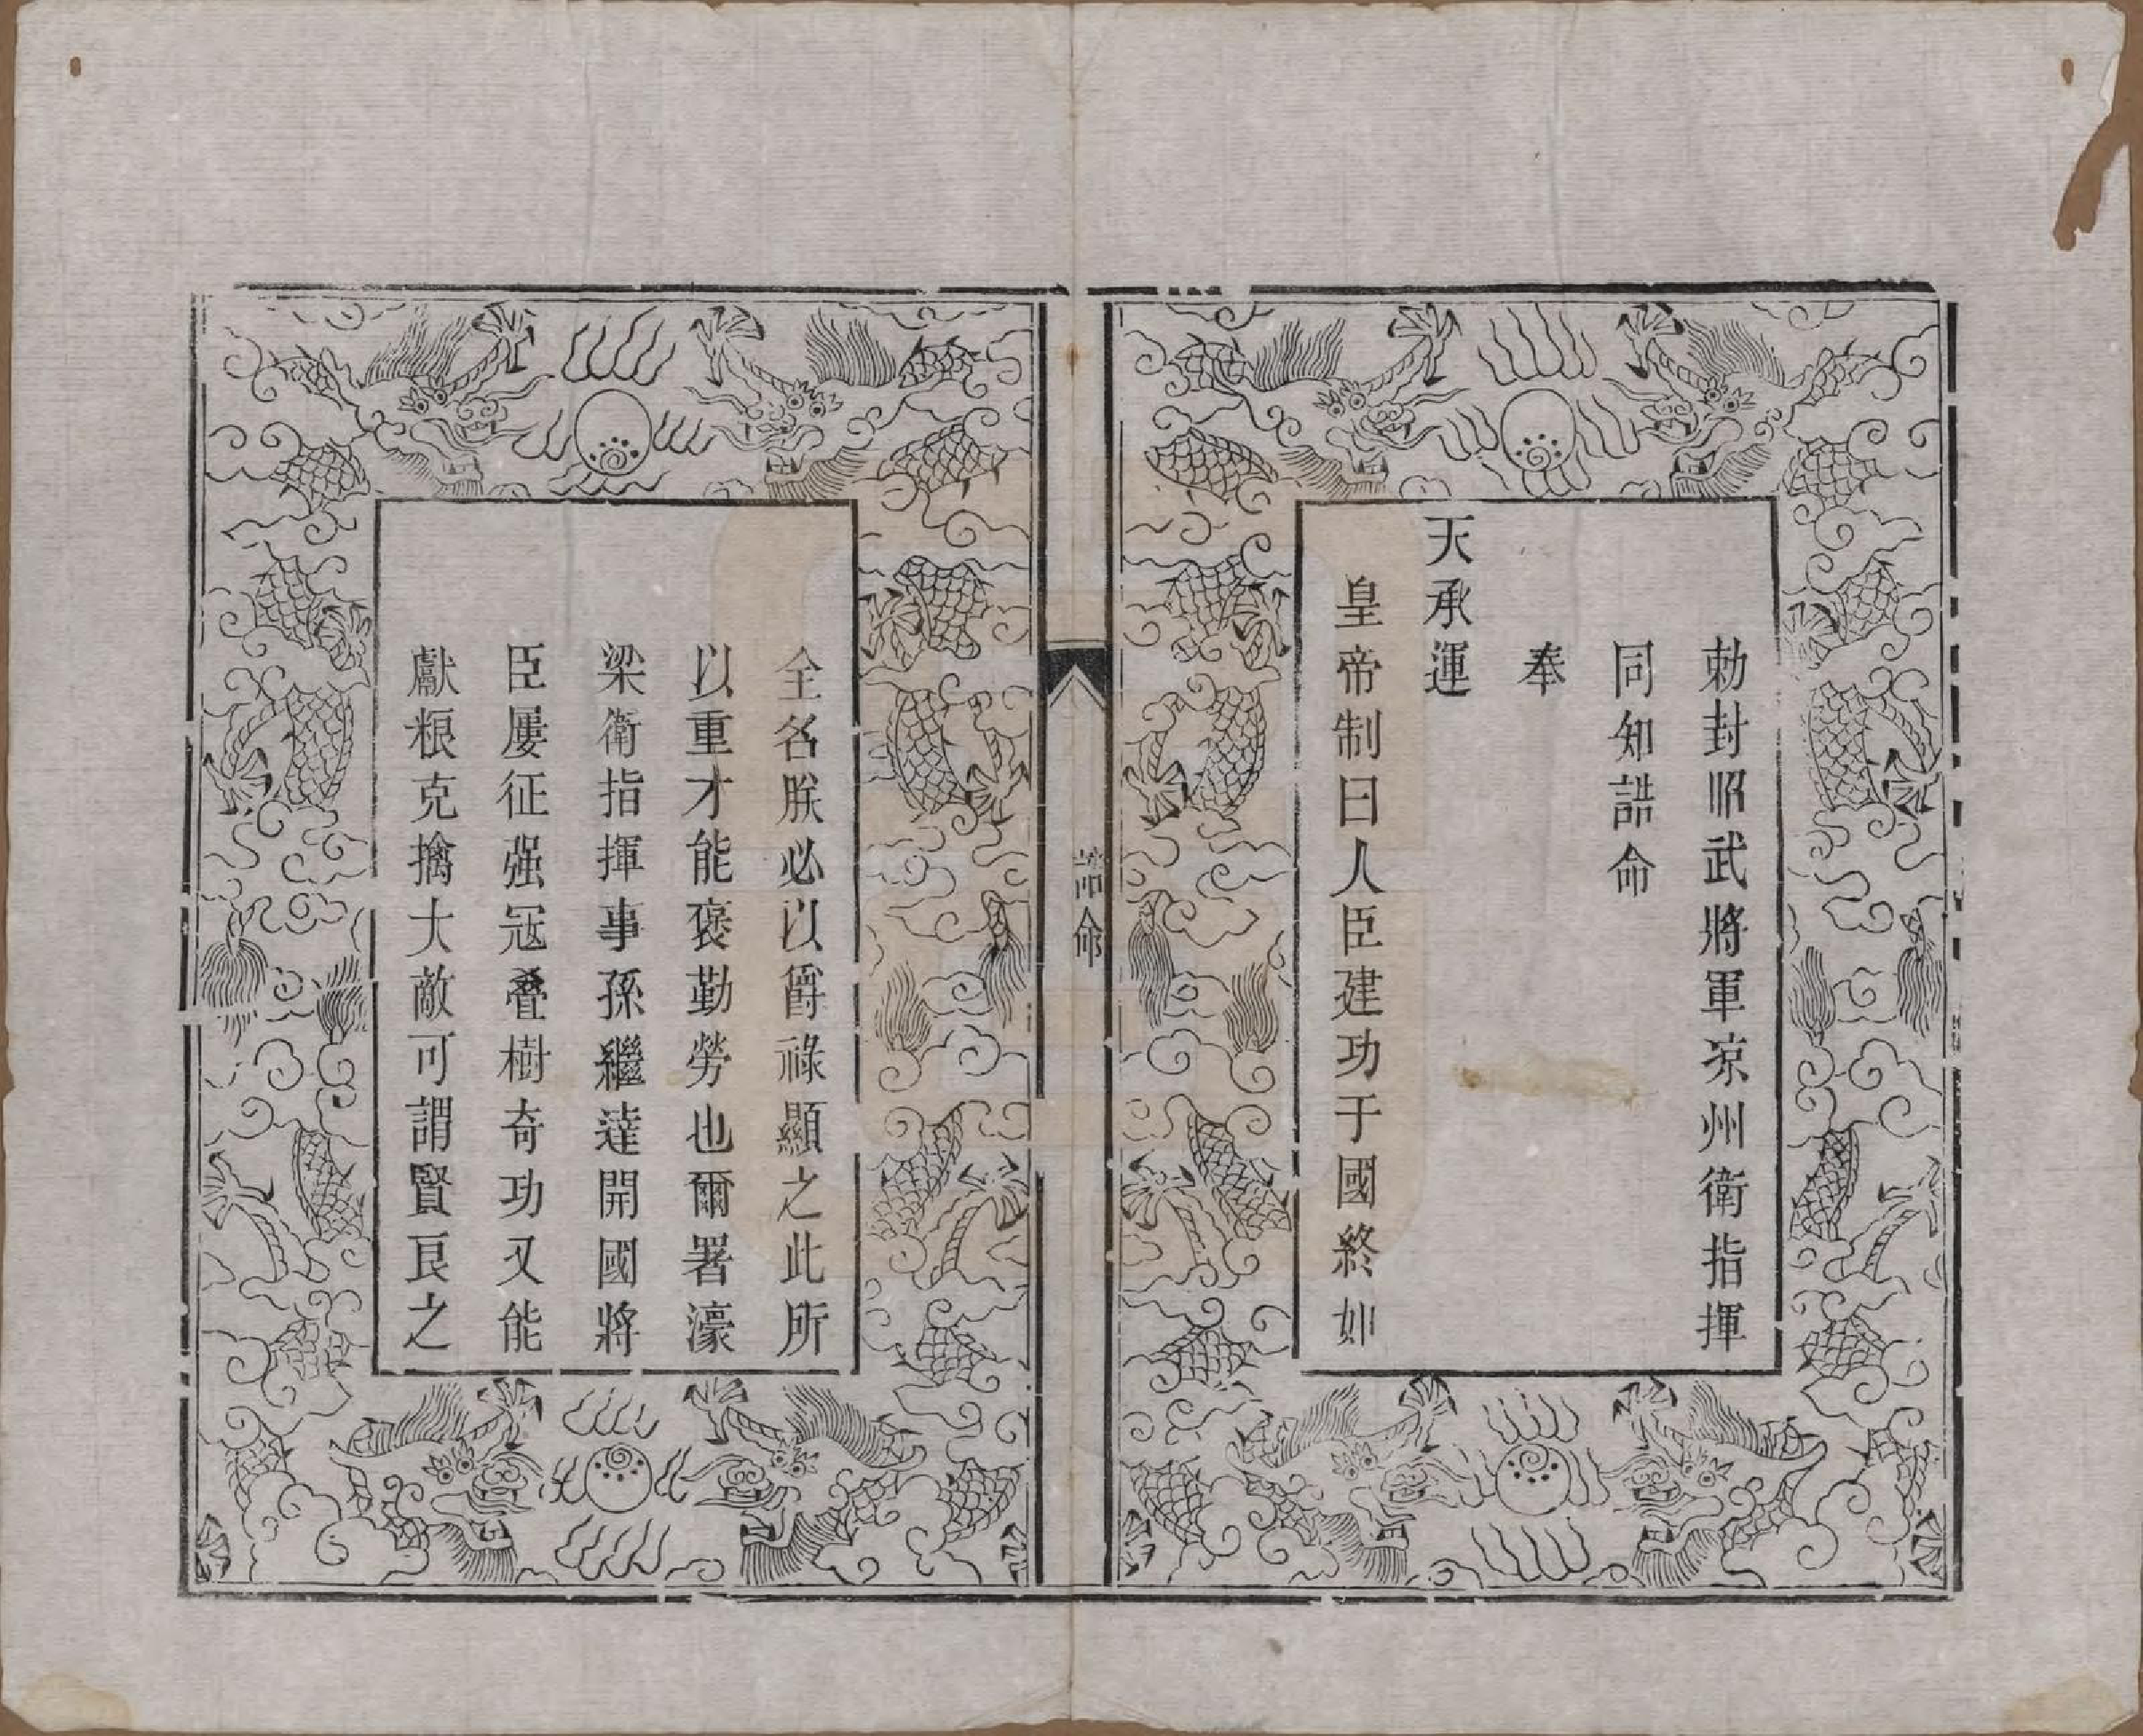 勅封昭武將軍凉州衛指揮
同知誥命
奉
天承運
皇帝制曰人臣建功于國終如
誥命
全名朕必以爵祿顯之此所
以重才能褒勤勞也爾署濠
梁衛指揮事孫繼達開國將
臣屢征强冦叠樹奇功又能
獻粮克擒大敵可謂賢良之